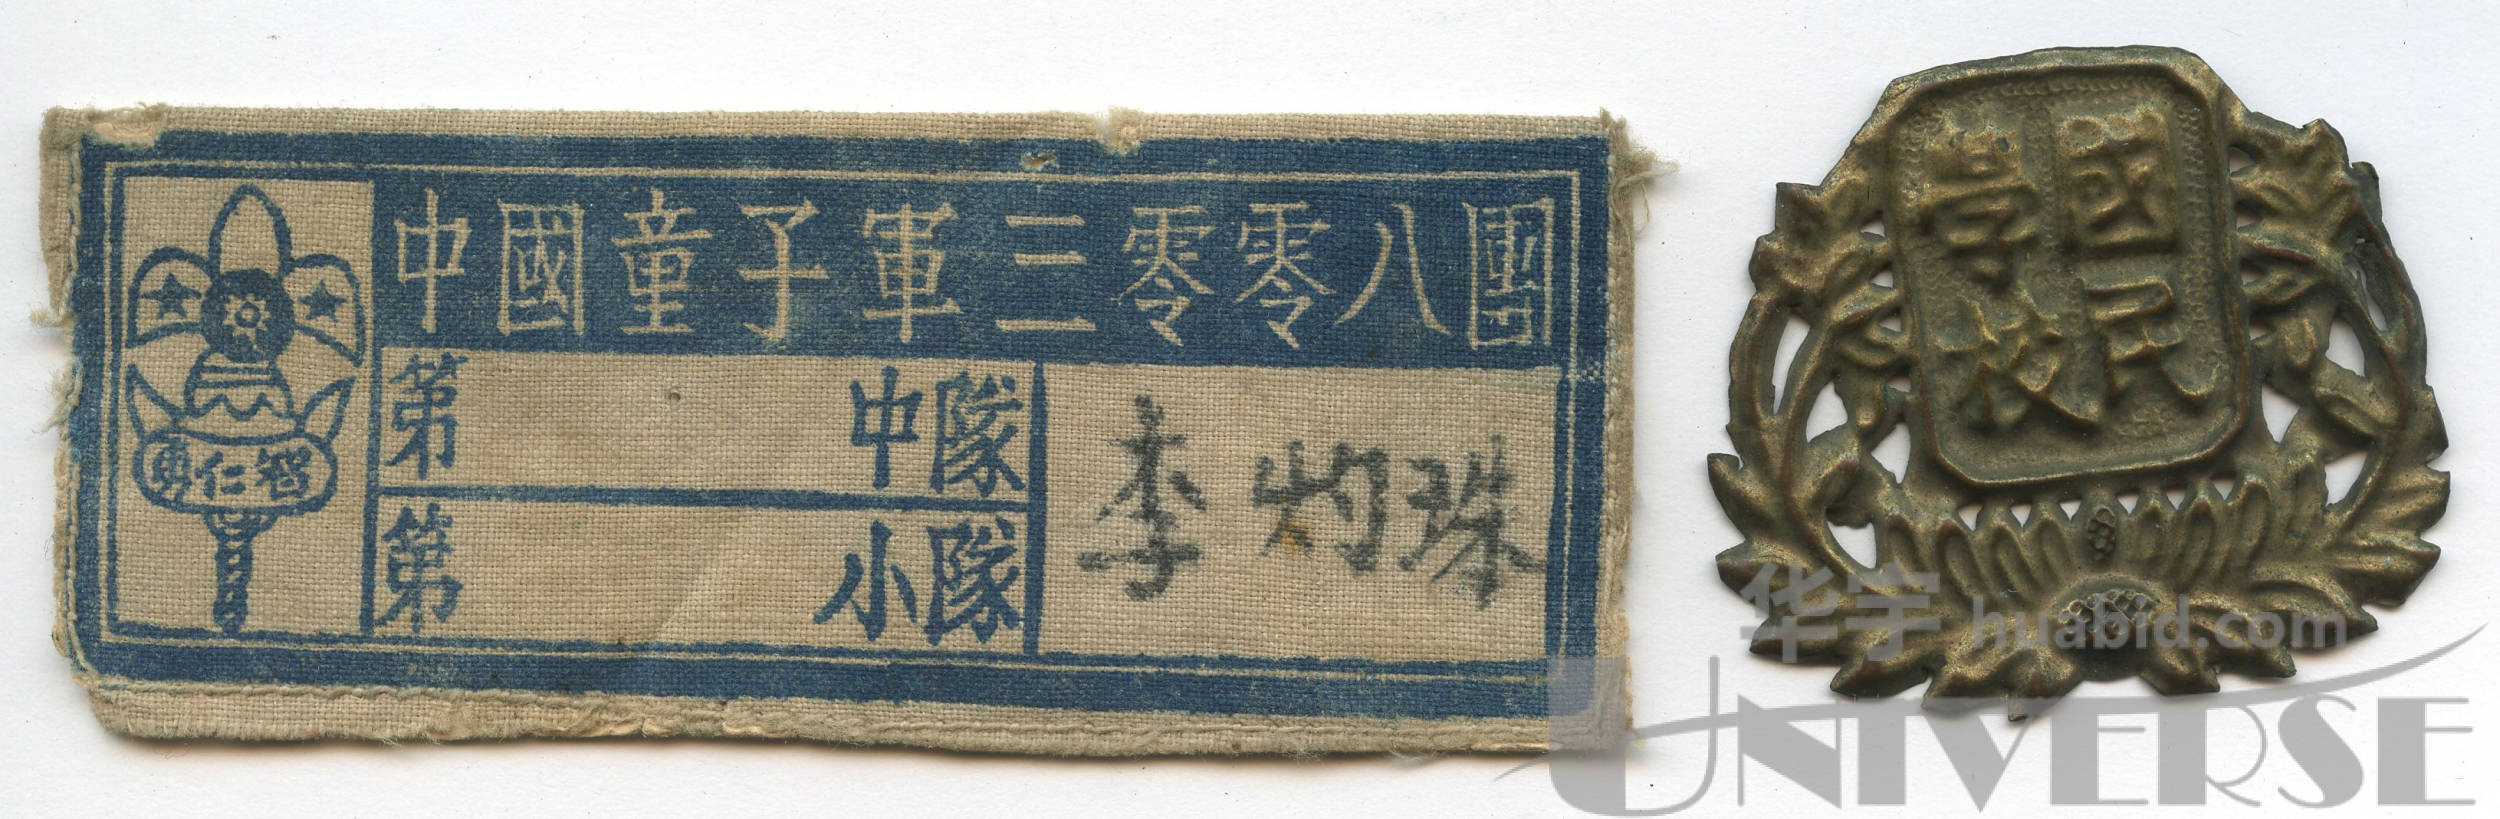 中國童子軍三零零八團
第 中隊
第 小隊
李灼珠
智仁勇
國民
學校
华宇 huabid.com
UNIVERSE